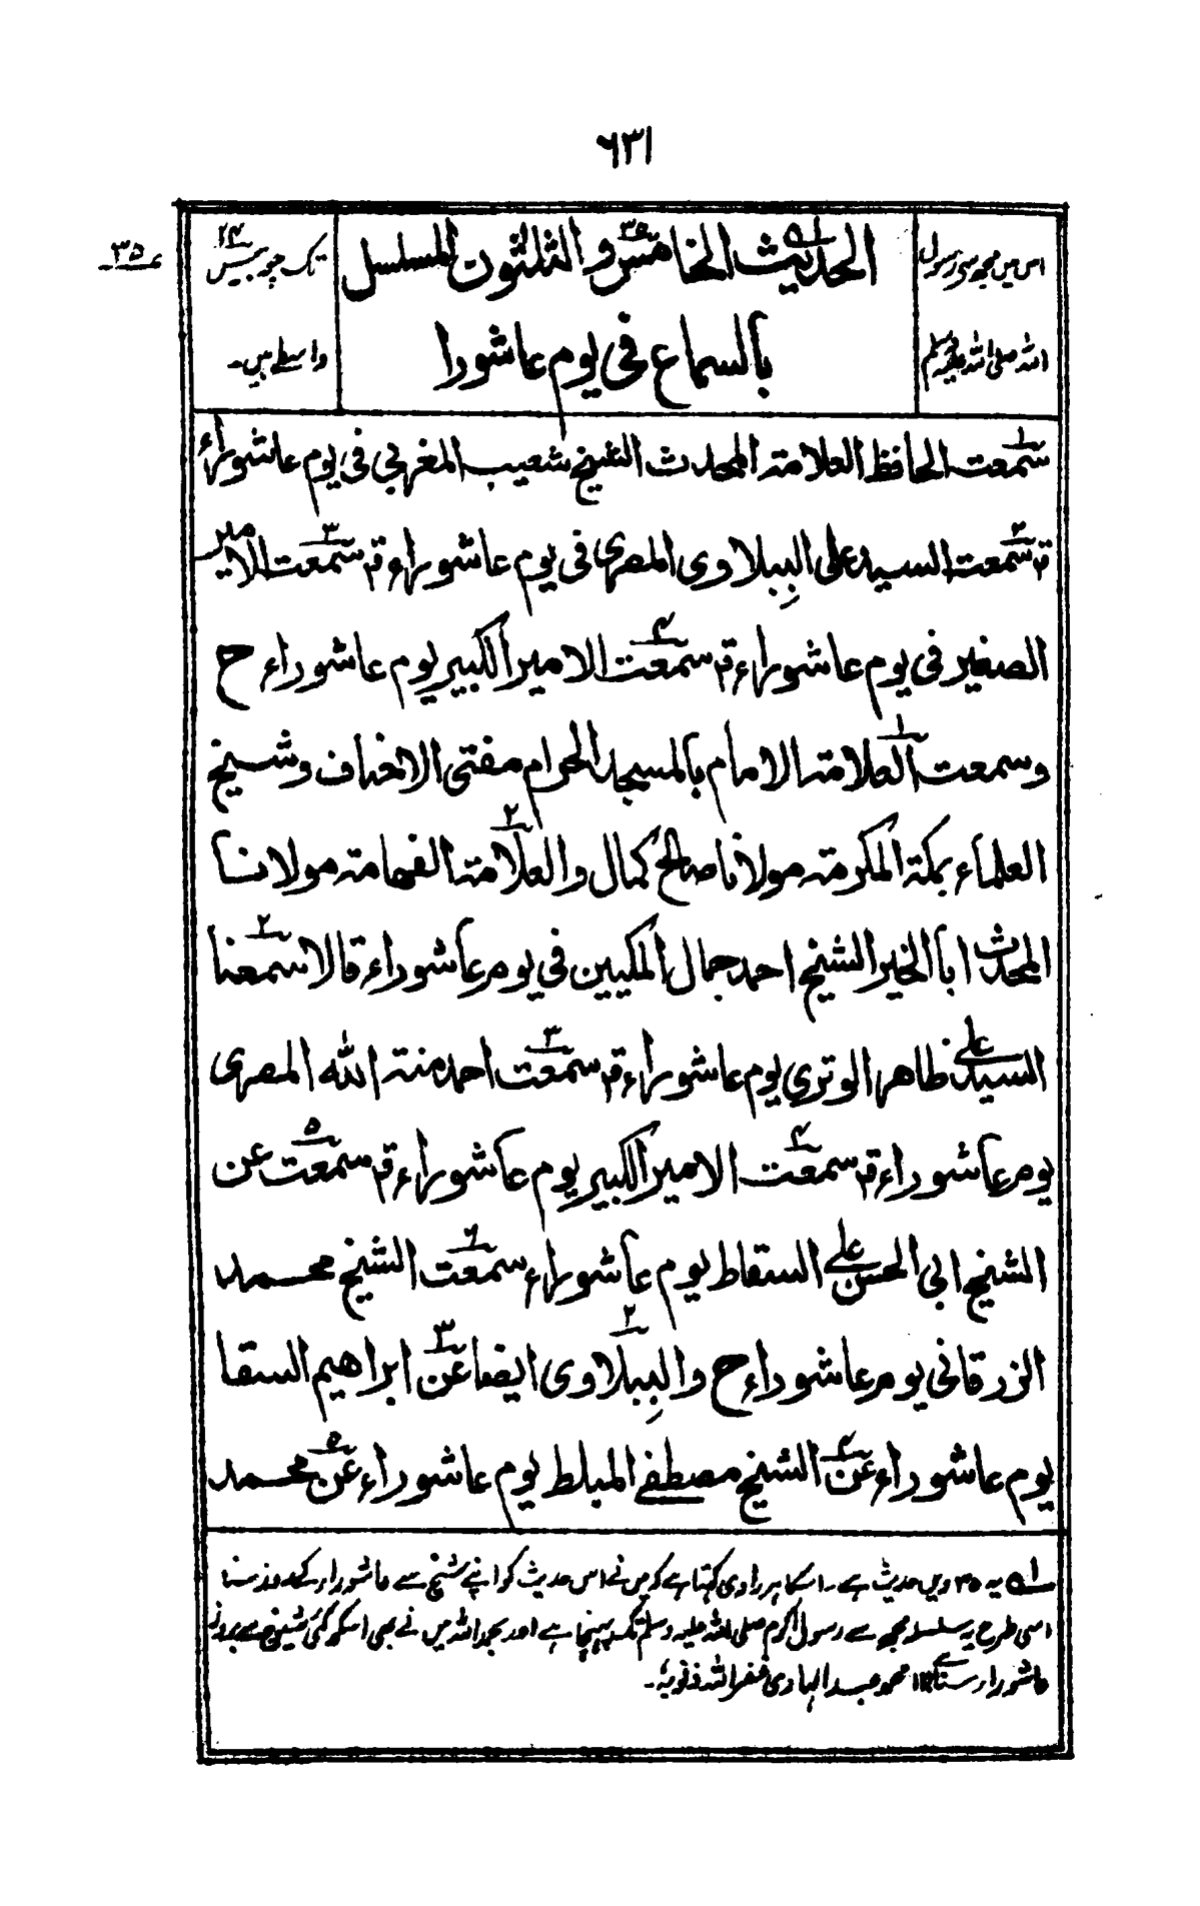 ٦٣١
اس میں مجھ سے رسول
اللہ صلی اللہ علیہ وسلم
الحدیث الخامس والثلثون المسلسل
بالسماع فی یوم عاشورا
تک چوبیس ٢٤
واسطے ہیں۔
٣٥
سمعت الحافظ العلامۃ المحدث الشیخ شعیب المغربی فی یوم عاشوراء
قہ سمعت السید علی الببِلاوی المصری فی یوم عاشوراء قہ سمعت الامیر
الصغیر فی یوم عاشوراء قہ سمعت الامیر الکبیر یوم عاشوراء ح
وسمعت العلامۃ الامام بالمسجد الحرام مفتی الاحناف وشیخ
العلماء بمکۃ المکرمۃ مولانا صالح کمال والعلامۃ الفہامۃ مولانا
المحدث ابا الخیر الشیخ احمد جمال المکیین فی یوم عاشوراء قالا سمعنا
السید علی ظاهر الوتری یوم عاشوراء قہ سمعت احمد منۃ اللہ المصری
یوم عاشوراء قہ سمعت الامیر الکبیر یوم عاشوراء قہ سمعت عن
الشیخ ابی الحسن علی السقاط یوم عاشوراء سمعت الشیخ محمد
الزرقانی یوم عاشوراء ح والببِلاوی ایضا عن ابراهیم السقا
یوم عاشوراء عن الشیخ مصطفے المبلط یوم عاشوراء عن محمد
یہ ٣٥ ویں حدیث ہے۔ اسکا ہر راوی کہتا ہے کہ میں نے اس حدیث کو اپنے شیخ سے عاشوراء کے روز سنا
اسی طرح یہ سلسلہ مجھ سے رسول اکرم صلی اللہ علیہ وسلم تک پہنچا ہے اور بحمد اللہ میں نے بھی اسکو کئی شیوخ سے بروز
عاشوراء سنا ہے ١٢ محمد عبد الہادی غفر اللہ ذنوبہٗ۔